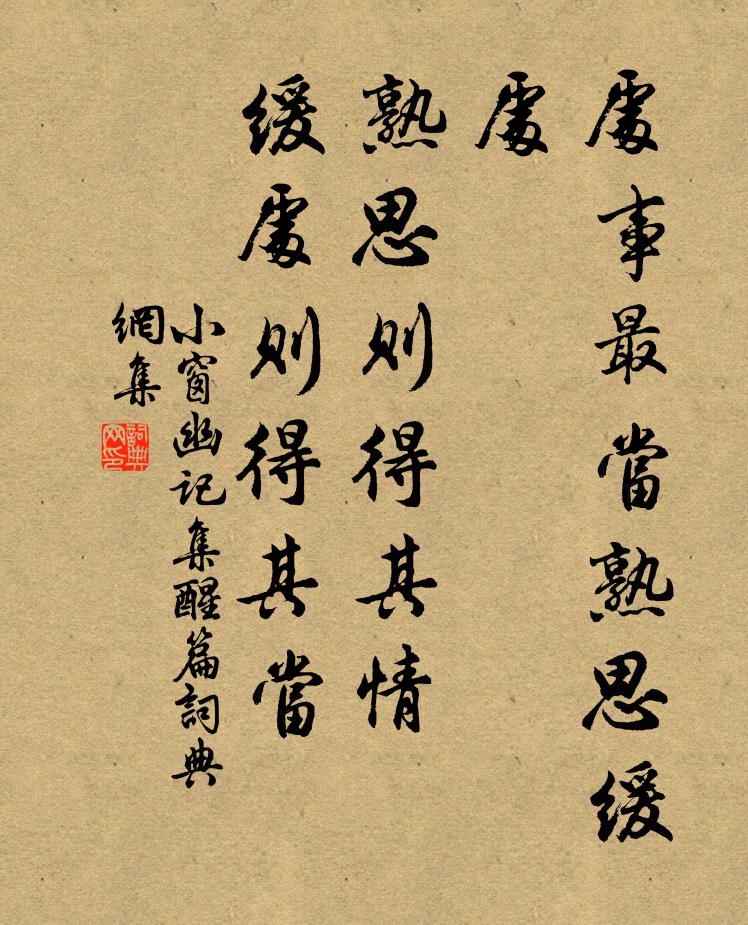 處事最當熟思緩
處
熟思則得其情
緩處則得其當
小窗幽记集醒篇詞典
網集
詞典
网印